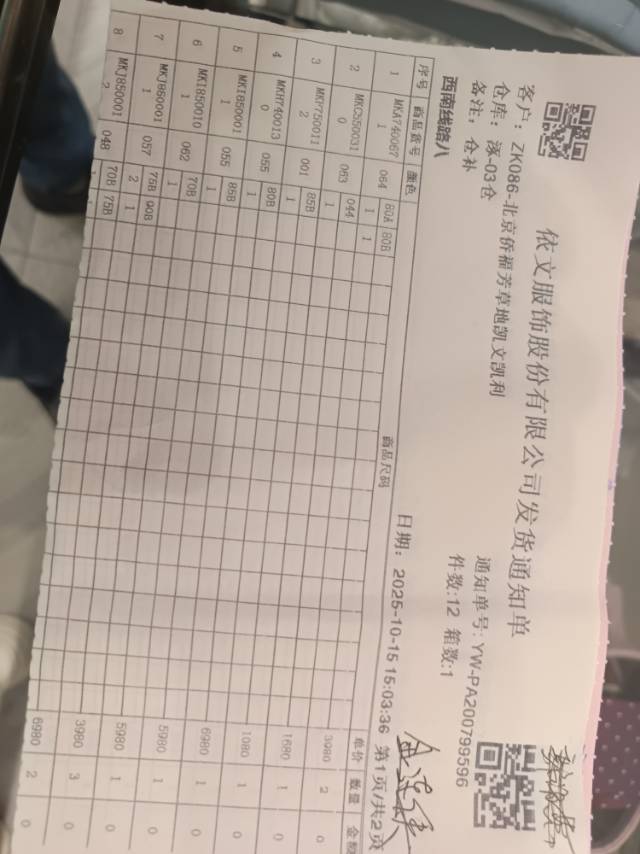 依文服饰股份有限公司发货通知单
客户：ZK086-北京侨福芳草地凯文凯利
通知单号：YW-PA200799596
仓库：涿-03仓
件数:12 箱数:1
备注：仓补
西南线路八
日期：2025-10-15 15:03:36 第1页/共2页
序号 商品款号 颜色 商品尺码 单价 数量 金额
80A 80B
1 MKA740067 1 064 1 1 3980 2 0
044
2 063 1 1680 1 0
85B
3 001 1 1080 1 0
80B
4 MKH740013 0 055 1 6980 1 0
85B
5 MKI850001 1 055 1 5980 1 0
70B
6 MKI850010 1 062 1 5980 1 0
75B 90B
7 MKJ860001 1 057 2 1 3980 3 0
70B 75B
8 MKJ850001 2 048 6980 2 0